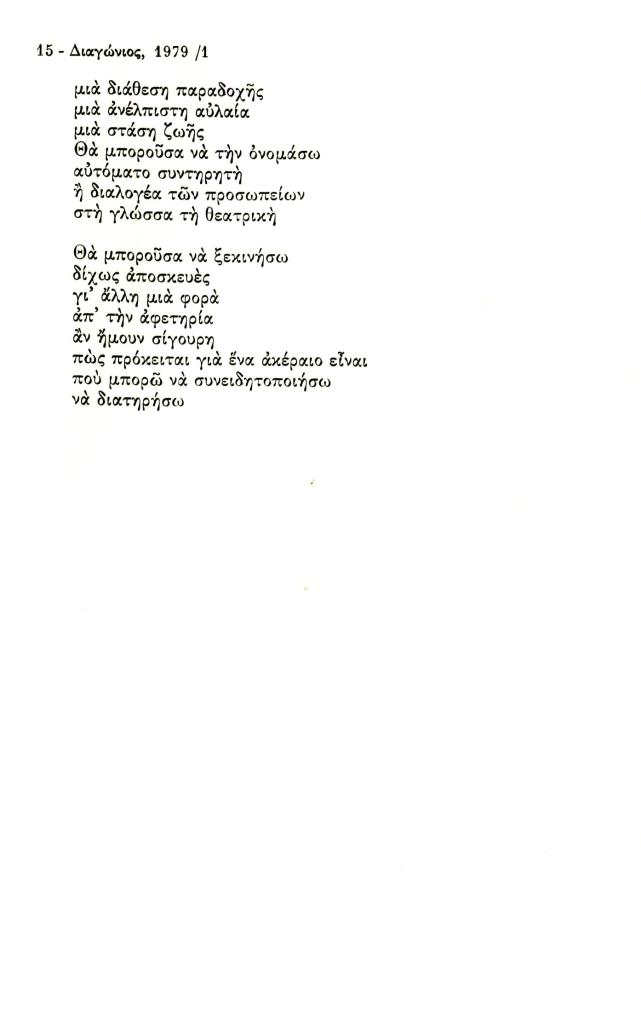 15 - Διαγώνιος, 1979 /1
μιὰ διάθεση παραδοχῆς
μιὰ ἀνέλπιστη αὐλαία
μιὰ στάση ζωῆς
Θὰ μποροῦσα νὰ τὴν ὀνομάσω
αὐτόματο συντηρητὴ
ἢ διαλογέα τῶν προσωπείων
στὴ γλώσσα τὴ θεατρικὴ
Θὰ μποροῦσα νὰ ξεκινήσω
δίχως ἀποσκευὲς
γι' ἄλλη μιὰ φορὰ
ἀπ' τὴν ἀφετηρία
ἂν ἤμουν σίγουρη
πὼς πρόκειται γιὰ ἕνα ἀκέραιο εἶναι
ποὺ μπορῶ νὰ συνειδητοποιήσω
νὰ διατηρήσω